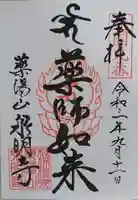 奉拝
令和二年九月十一日
薬師如来
薬湯山